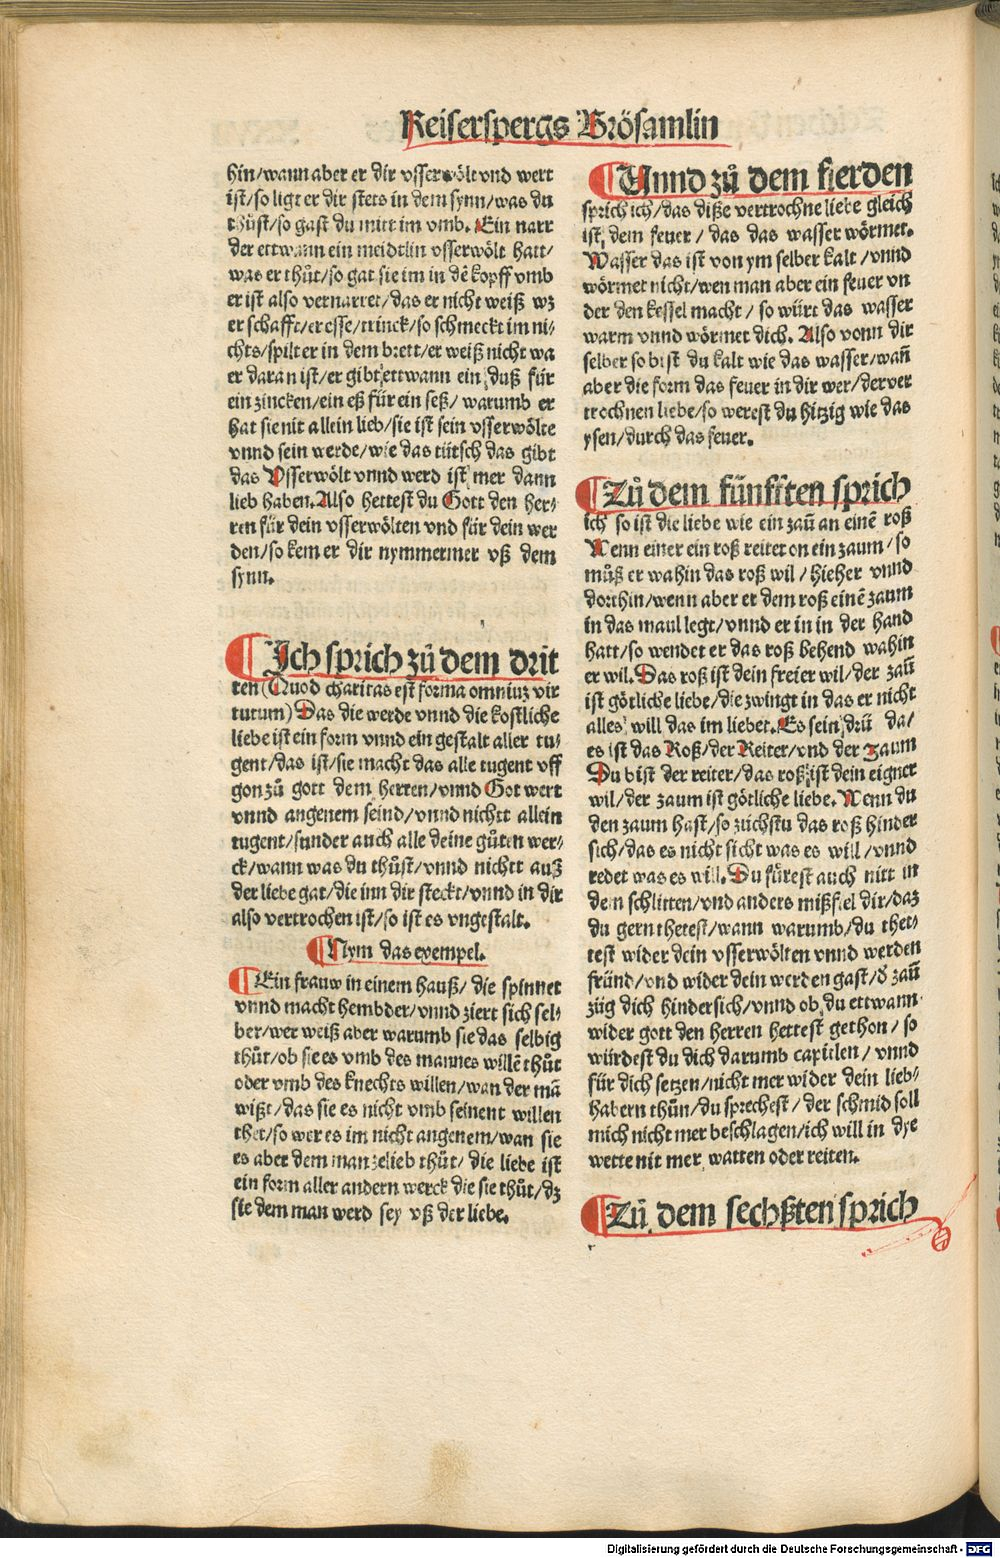 Keiserspergs Brösamlin
hin/wann aber er dir vsserwölt vnd wert
ist/so ligt er dir stets in dem synn/was du
thůst/so gast du mitt im vmb. Ein narr
der ettwann ein meidtlin vsserwölt hatt/
was er thůt/so gat sie im in dẽ kopff vmb
er ist also vernarret/das er nicht weiß wz
er schafft/er esse/trinck/so schmeckt im ni-
chts/spilt er in dem brett/er weiß nicht wa
er daran ist/er gibt ettwann ein duß für
ein zincken/ein eß für ein seß/ warumb er
hat sie nit allein lieb/sie ist sein vsserwölte
vnnd sein werde/wie das tütsch das gibt
das Vsserwölt vnnd werd ist mer dann
lieb haben. Also hettest du Gott den her-
ren für dein vsserwölten vnd für dein wer
den/so kem er dir nymmermer vß dem
synn.
Ich sprich zů dem drit
ten (Quod charitas est forma omniuz vir
tutum) Das die werde vnnd die kostliche
liebe ist ein form vnnd ein gestalt aller tu-
gent/das ist/sie macht das alle tugent vff
gon zů gott dem herren/vnnd Got wert
vnnd angenem seind/vnnd nichtt allein
tugent/sunder auch alle deine gůten wer-
ck/wann was du thůst/vnnd nichtt auß
der liebe gat/die inn dir steckt/vnnd in dir
also vertrochen ist/so ist es vngestalt.
Nym das exempel.
Ein frauw in einem hauß/ die spinnet
vnnd macht hembder/vnnd ziert sich sel-
ber/wer weiß aber warumb sie das selbig
thůt/ob sie es vmb des mannes willẽ thůt
oder vmb des knechts willen/wan der mã
wißt/das sie es nicht vmb seinent willen
thet/so wer es im nicht angenem/wan sie
es aber dem man zelieb thůt/ die liebe ist
ein form aller andern werck die sie thůt/dz
sie dem man werd sey vß der liebe.
Vnnd zů dem fierden
sprich ich/das diße vertrochne liebe gleich
ist dem feuer/ das das wasser wörmet.
Wasser das ist von ym selber kalt/vnnd
wörmet nicht/wen man aber ein feuer vn
der den kessel macht/ so würt das wasser
warm vnnd wörmet dich. Also vonn dir
selber so bist du kalt wie das wasser/wañ
aber die form das feuer in dir wer/der ver
trochnen liebe/so werest du hitzig wie das
ysen/durch das feuer.
Zů dem fünfften sprich
ich so ist die liebe wie ein zaũ an einẽ roß
Wenn einer ein roß reitet on ein zaum/so
můß er wahin das roß wil/ hieher vnnd
dorthin/wenn aber er dem roß einẽ zaum
in das maul legt/vnnd er in in der hand
hatt/so wendet er das roß behend wahin
er wil. Das roß ist dein freier wil/der zaũ
ist götliche liebe/die zwingt in das er nicht
alles will das im liebet. Es sein drü da/
es ist das Roß/der Reiter/vnd der Zaum
Du bist der reiter/das roß ist dein eigner
wil/der zaum ist götliche liebe. Wenn du
den zaum hast/so züchstu das roß hinder
sich/das es nicht sicht was es will/vnnd
redet was es will. Du fürest auch nitt in
dem schlitten/vnd anders mißfiel dir/daz
du gern thetest/wann warumb/du thet-
test wider dein vsserwölten vnnd werden
fründ/vnd wider dein werden gast/ð zaũ
züg dich hindersich/vnnd ob du ettwann
wider gott den herren hettest gethon/ so
würdest du dich darumb capitlen/ vnnd
für dich setzen/nicht mer wider dein lieb-
habern thůn/du sprechest/ der schmid soll
mich nicht mer beschlagen/ich will in dye
wette nit mer watten oder reiten.
Zů dem sechßten sprich
Digitalisierung gefördert durch die Deutsche Forschungsgemeinschaft - DFG